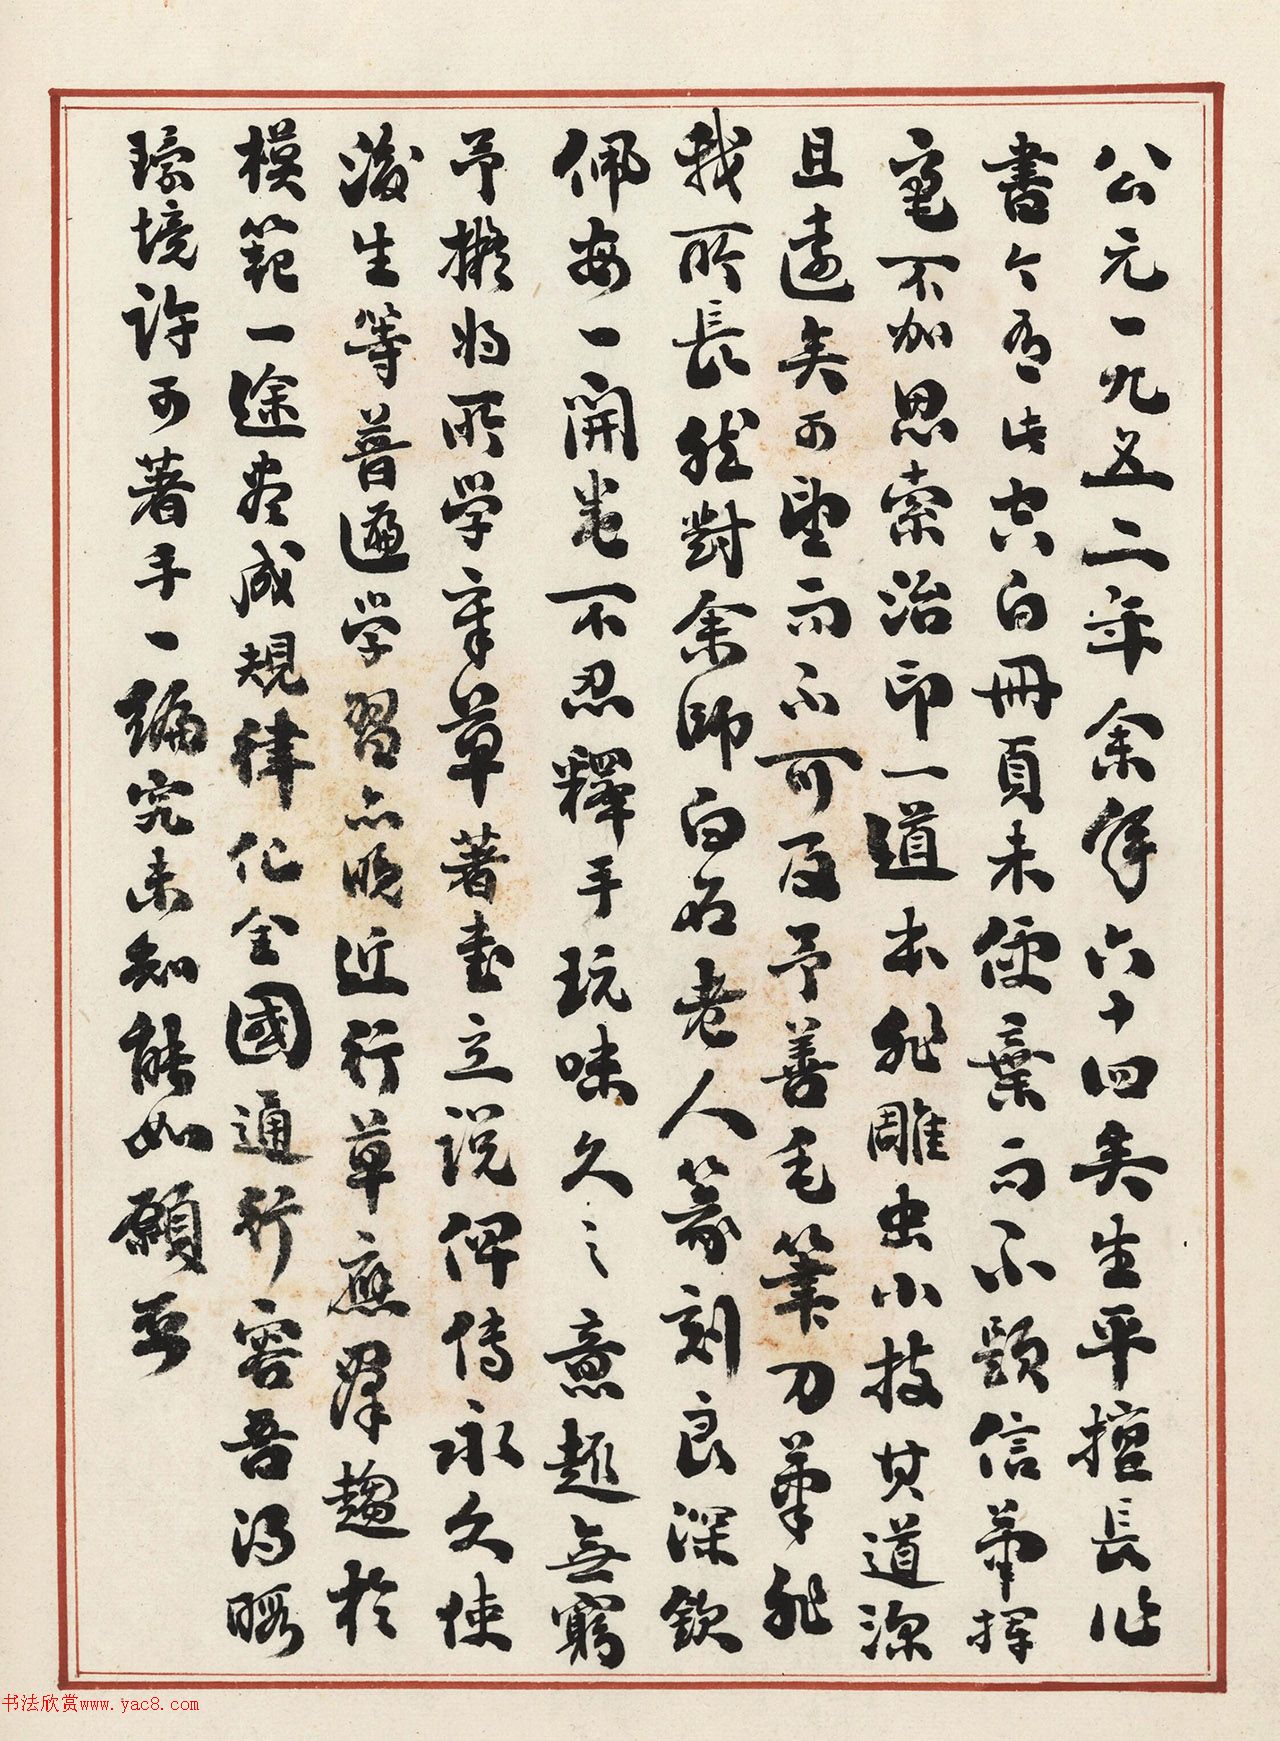 公元一九五二年余年六十四矣生平擅長作
書今有此空白冊頁未便棄而不題信筆揮
毫不加思索治印一道本非雕虫小技其道深
且遠矣可望而不可及予善毛筆刀筆非
我所長然對余師白石老人篆刻良深欽
佩每一開卷不忍釋手玩味久之意趣無窮
予擬将所學章草著書立说俾傳永久使
後生等普遍学習亦晚近行草應群趨於
模範一途卷成規律化全國通行容吾得暇
環境許可著手一編究未知能如願否
书法欣赏www.yac8.com